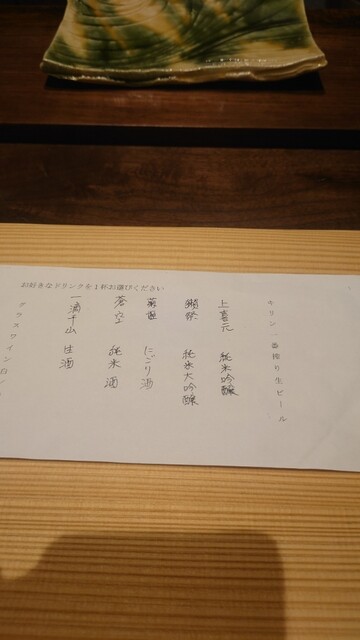 お好きなドリンクを1杯お選びください
キリン一番搾り生ビール
上喜元 純米吟醸
獺祭 純米大吟醸
菊姫 にごり酒
蒼空 純米酒
一滴千山 生酒
グラスワイン白/